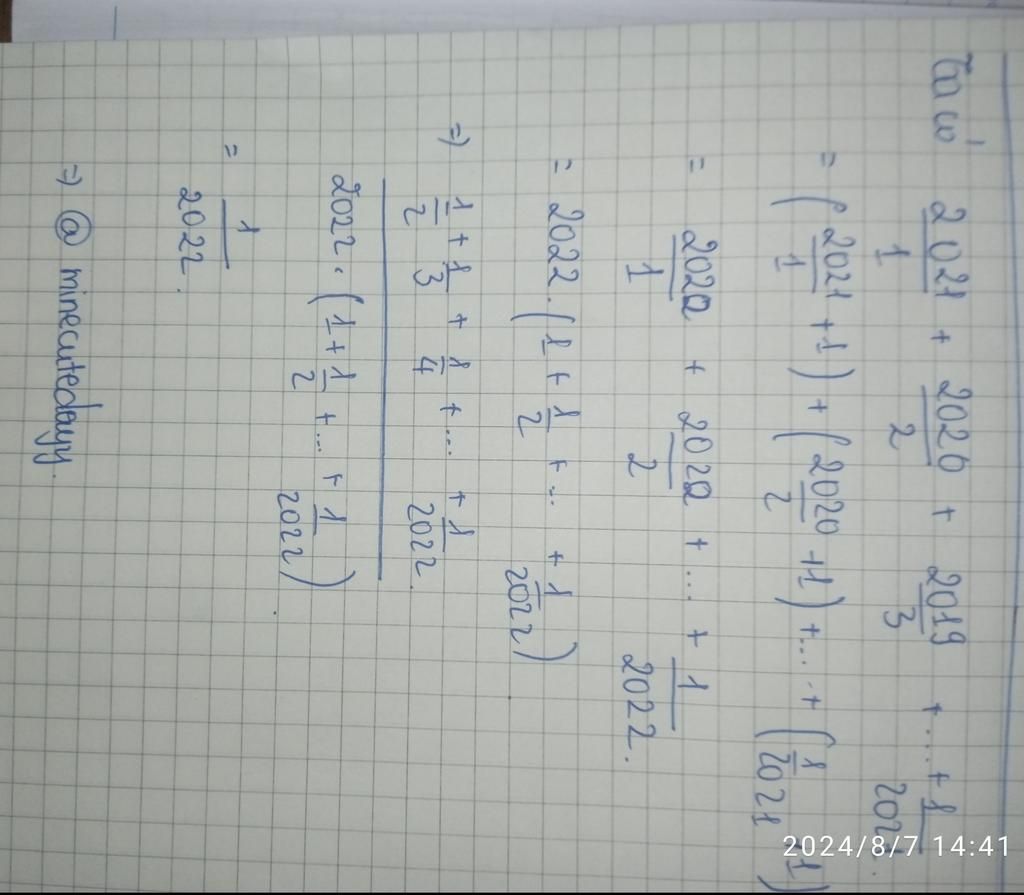 Ta có 2021/1 + 2020/2 + 2019/3 + ... + 1/2021.
= (2021/1 + 1) + (2020/2 + 1) + ... + (1/2021 + 1)
= 2022/1 + 2022/2 + ... + 1/2022.
= 2022.(1 + 1/2 + ... + 1/2022)
=) 1/2 + 1/3 + 1/4 + ... + 1/2022.
2022.(1 + 1/2 + ... + 1/2022)
= 1/2022.
=) @ minecutedayy.
2024/8/7 14:41